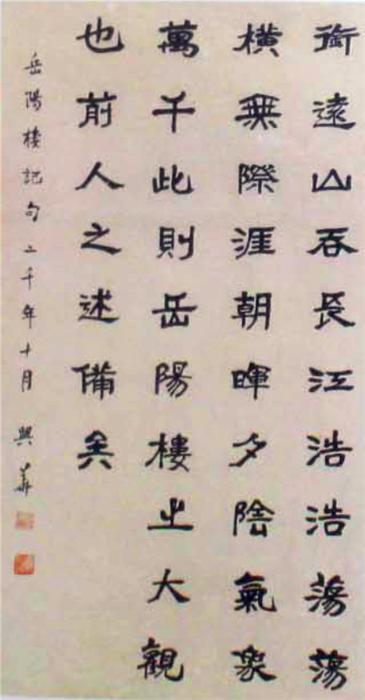 銜遠山吞長江浩浩蕩蕩
橫無際涯朝暉夕陰氣象
萬千此則岳陽樓之大觀
也前人之述備矣
岳陽樓記句二千年十月興華